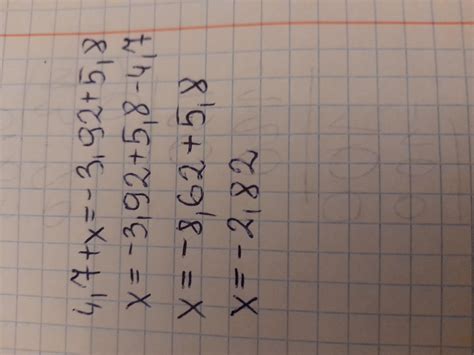 4,7+x=-3,92+5,8
x=-3,92+5,8-4,7
x=-8,62+5,8
x=-2,82